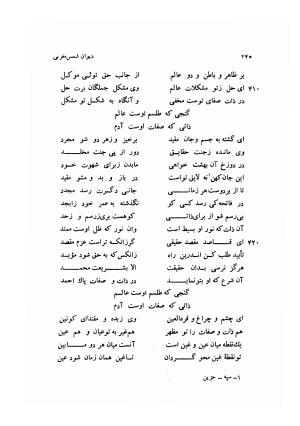 ۲۴۵ دیوان شمس مغربی
بر ظاهر و باطن و دو عالم از جانب حق توئی موکل
۴۱۰ ای حل زتو مشکلات عالم وی مشکل جملگان برت حل
در ذات صفای توست مخفی و آنگاه به شکل تو مشکل
گنجی که طلسم اوست عالم
ذاتی که صفات اوست آدم
ای گشته به جسم وجان مقید برخیز و زهر دو شو مجرد
وی مانده زجنت حقایق دور از پی جنت مخلد
در دوزخ آن بهشت خواهی ماندن زبرای شهوت خود
این جان کهن نه لایق توست در باز و بد و مشو مقید
تا از بر دوست هر زمانی جانی دگرت رسد مجدد
در فاتحه کی رسد کسی کو نگذشته به عمر خود زابجد
بی رسم شو از برای ذاتی کوهست بری زرسم و زحد
آن ذات که نور او بسیط است وان نور که ظل اوست ممتد
۴۲۰ ای قاصد مقصد حقیقی گرزانکه تراست عزم مقصد
تأیید طلب کن اندرین راه زانکس که به حق شود مؤید
هرگز نرسی بدان حقیقت الا بشریعت محمد
آن شرع که او بتو نماید در ذات و صفات پاک احمد
گنجی که طلسم اوست عالم
ذاتی که صفات اوست آدم
ای چشم و چراغ و قرةالعین وی زبده و مقتدای کونین
ای ذات و صفات را تو مظهر هم غیر به تو عیان و هم عین
یک نقطه میان عین و غین است آنست میان هر دو مابین
تو نقطهٔ غین محو گردان تا غین همان زمان شود عین
۱- سپه - حزین